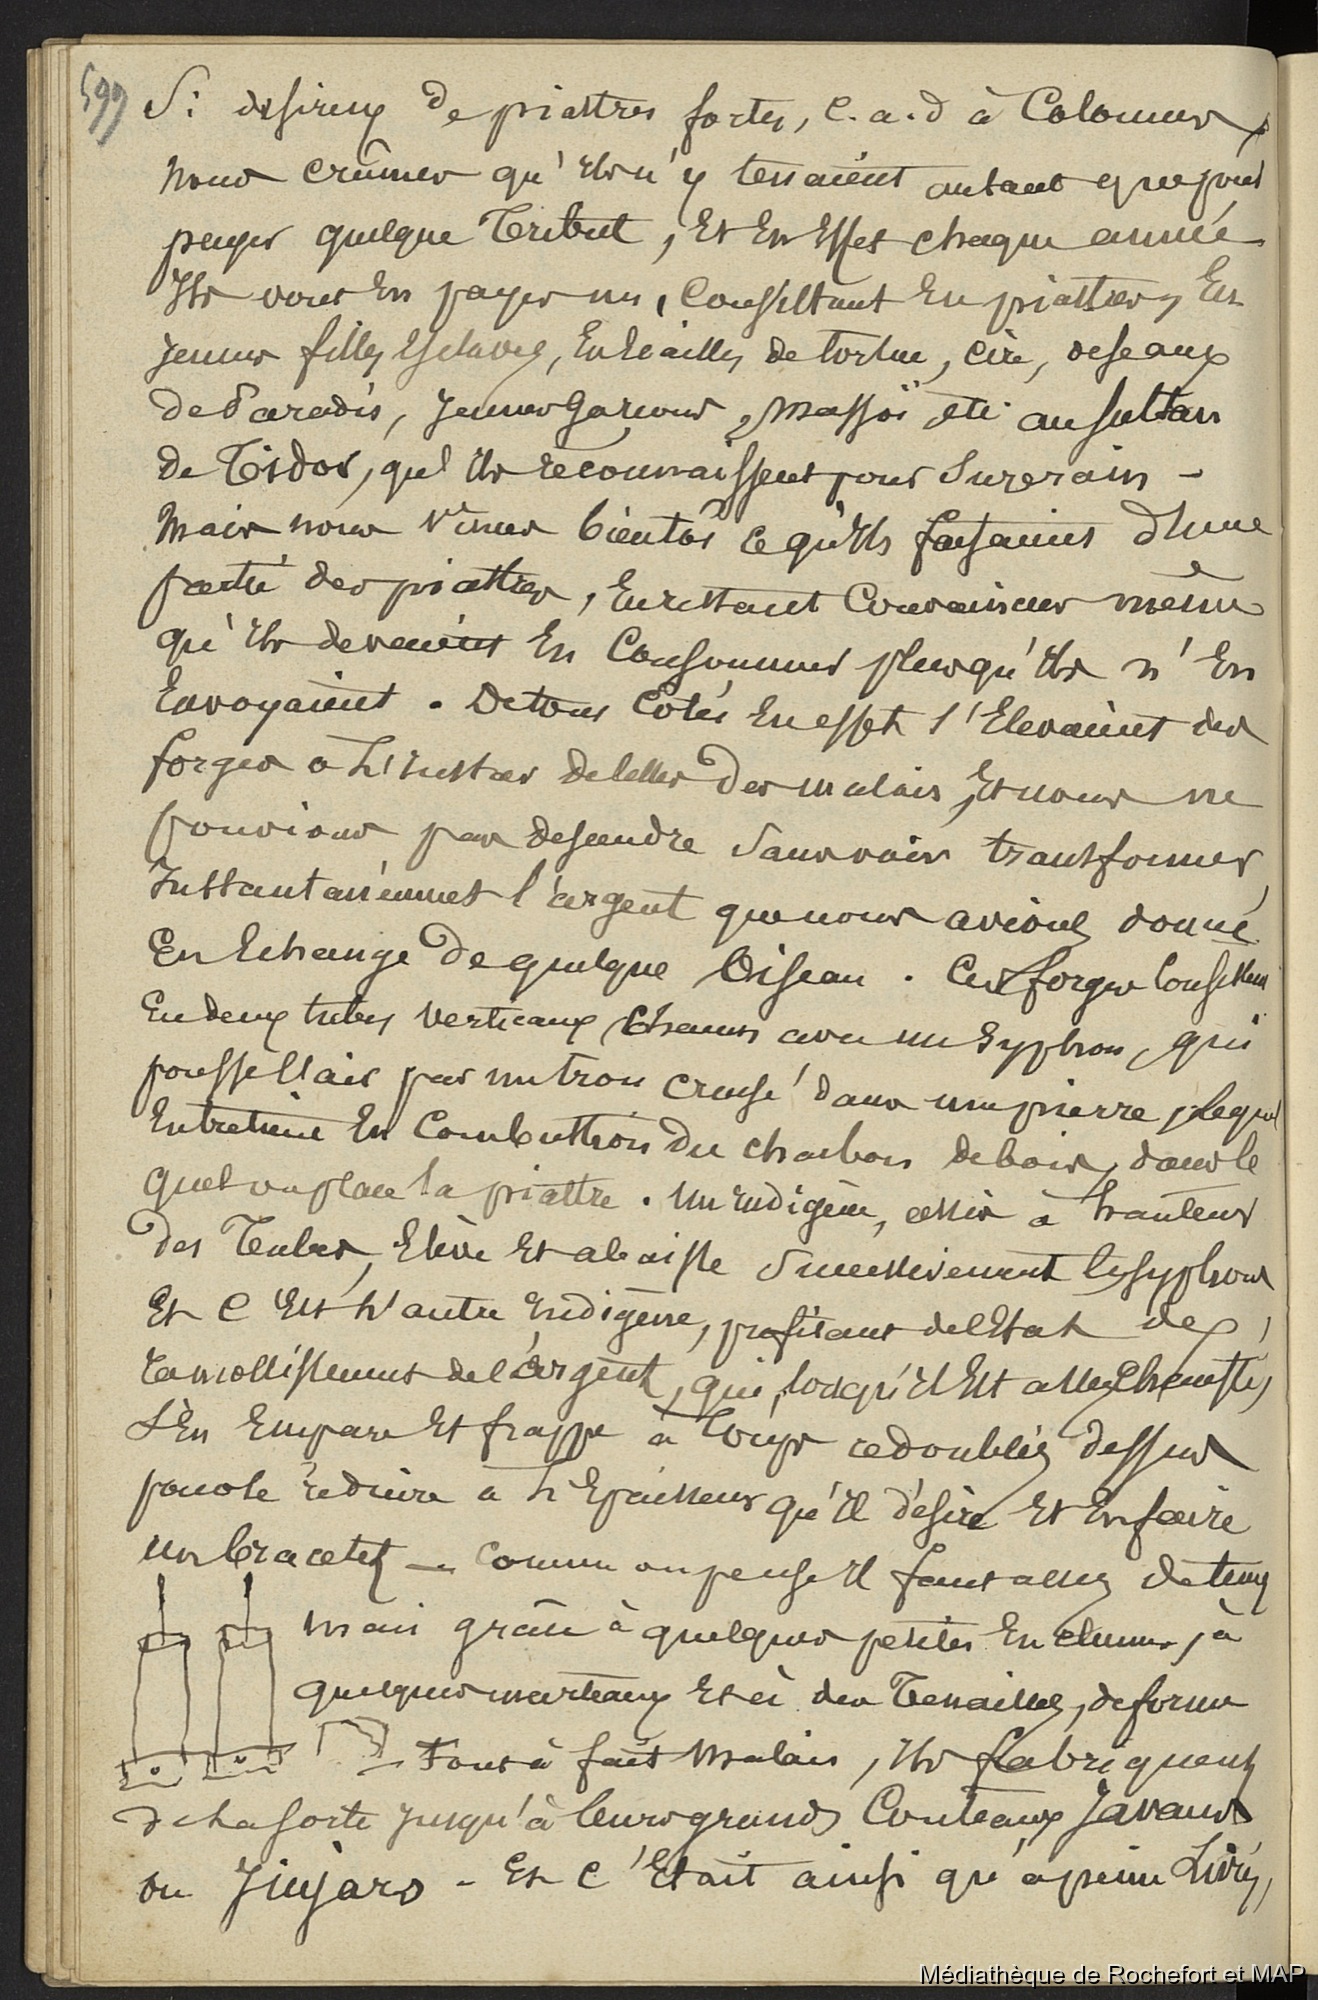 599
Si desireux de piastres fortes, c.a.d à Colonnes,
nous crûmes qu'ils n'y tenaient autant que pour
payer quelque Tribut, Et En Effet chaque année
Ils vont En payer un, Consistant En piastres, En
jeunes filles Esclaves, En Ecailles de tortue, cire, oiseaux
de Paradis, jeunes garçons, massoï etc au sultan
de Tidor, qu'ils reconnaissent pour Suzerain -
Mais nous vîmes bientôt ce qu'ils faisaient d'une
partie des piastres, En restant Convaincus même
qu'ils devaient En Consommer plus qu'ils n'En
Envoyaient. De tous Cotés En effet s'Elevaient des
forges à L'instar de celles des malais, Et nous ne
pouvions pas descendre Sans voir transformer
Instantanément l'argent que nous avions donné
En Echange de quelque Oiseau. Ces forges Consistent
En deux tubes verticaux, Chacun avec un Syphon, qui
pousse l'air par un trou creusé dans une pierre, lequel
Entretient En Combustion du charbon de bois, dans le
quel on place la piastre. Un indigène, assis à hauteur
des Tubes, Elève Et abaisse Successivement les syphons
Et C'Est L'autre Indigène, profitant de l'Etat de
ramollissement de l'argent, qui, lorsqu'il Est assez
S'En Empare Et frappe à Coups redoublés dessus
pour le réduire à L'Epaisseur qu'il désire Et En faire
un bracelet — Comme on pense Il faut assez de temps
mais grâce à quelques petites Enclumes, à
quelques marteaux Et à des Tenailles, de forme
Tout à fait Malais, Ils fabriquent
de La sorte jusqu'à leurs grands Couteaux Javanais
ou - Et C'Etait ainsi qu'à peine Livrés,
Médiathèque de Rochefort et MAP